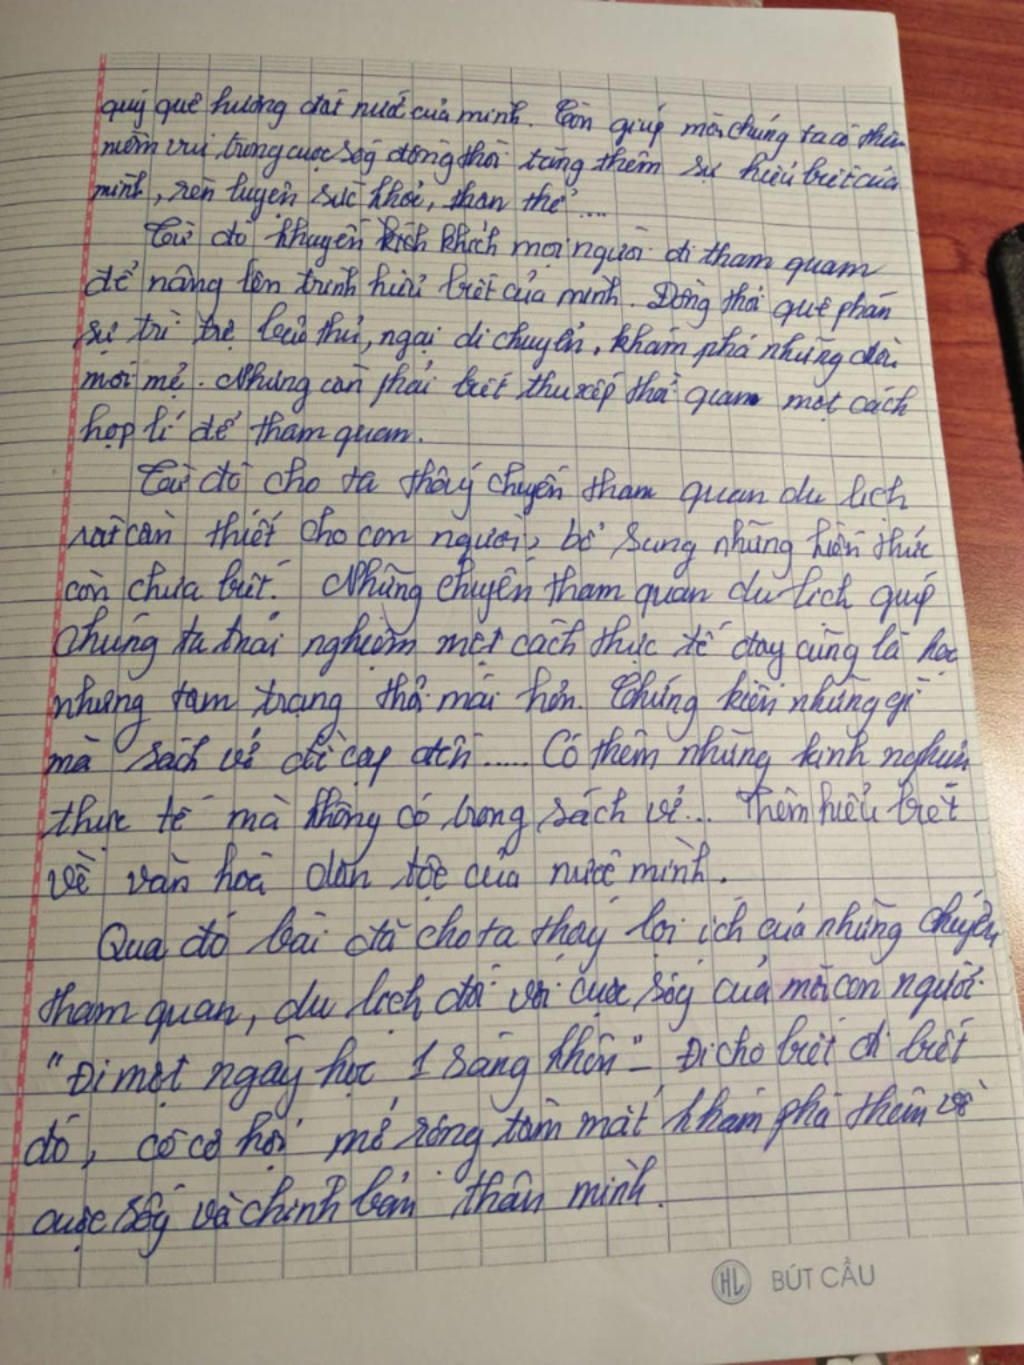 quý quê hương đất nước của mình. Còn giúp mỗi chúng ta có thêm
niềm vui trong cuộc sốg đồng thời tăng thêm sự hiểu biết của
mình, rèn luyện sức khỏe, thân thể ....
Từ đó khuyến khích mọi người đi tham quam
để nâng lên trình hiểu biết của mình. Đồng thời quê phán
sự trì trệ thủ, ngại di chuyển, khám phá những điều
mới mẻ. Nhưng cần phải biết thu xếp thời quan một cách
hợp lí để tham quan.
Từ đó cho ta thấy chuyến tham quan du lịch
rất cần thiết cho con người, bổ sung những kiến thức
còn chưa biết. Những chuyến tham quan du lịch giúp
chúng ta trải nghiệm một cách thực tế đây cũng là học
nhưng tâm trạng thoả mái hơn. Chứng kiến những gì
mà sách vở đề cập đến ..... Có thêm những kinh nghiệm
thực tế mà không có trong sách vở ... Thêm hiểu biết
về văn hoá dân tộc của nước mình.
Qua đó bài đã cho ta thấy lợi ích của những chuyến
tham quan, du lịch đối với cuộc sốg của mỗi con người.
"Đi một ngày học 1 sàng khôn" - Đi cho biết đi biết
đó, có cơ hội mở rộng tầm mắt khám phá thêm về
cuộc sốg và chính bản thân mình.
HL BÚT CẦU